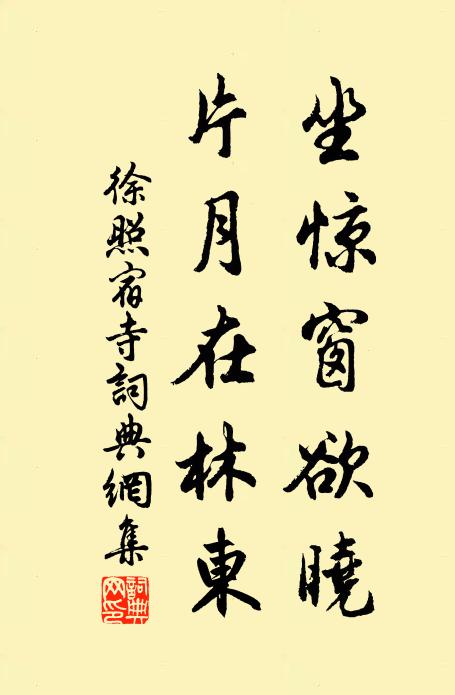 坐惊窗欲曉
片月在林東
徐照宿寺詞典網集
詞典网印